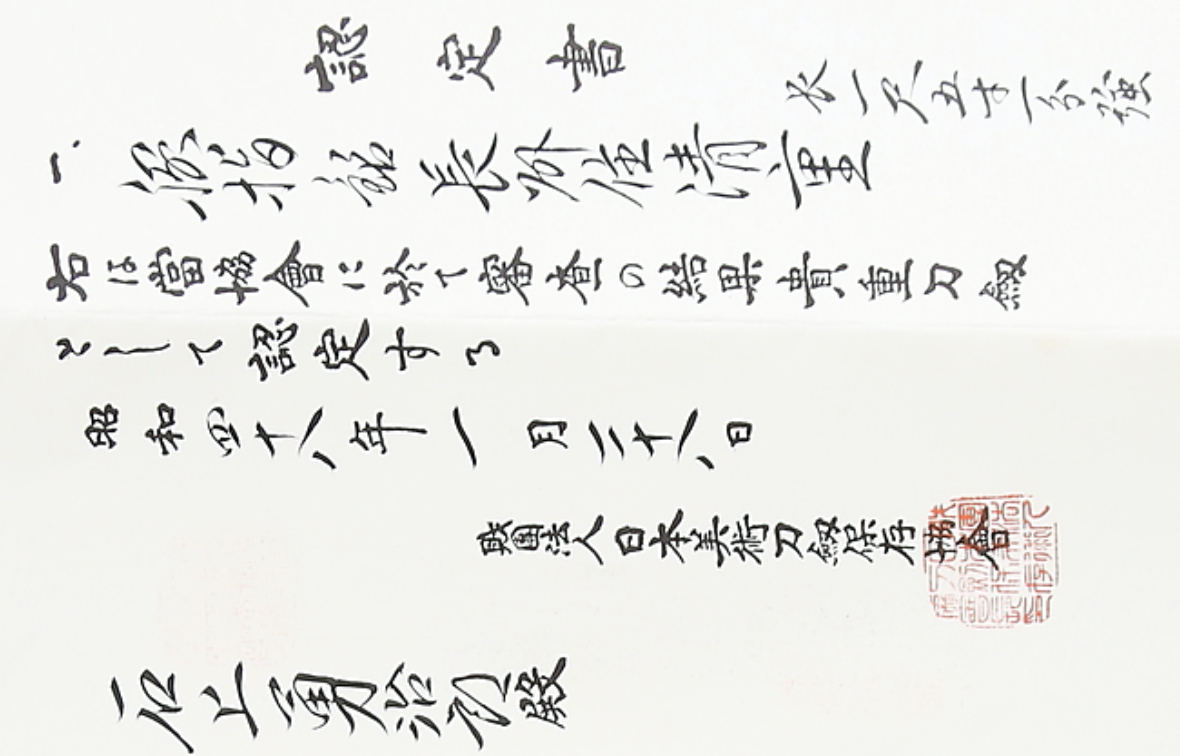 認定書
一、脇指 銘 長州住清重
長一尺五寸一分強
右は當協會に於て審査の結果貴重刀劔
として認定する
昭和四十八年一月二十八日
財團法人日本美術刀劔保存協會
石上勇治郎殿